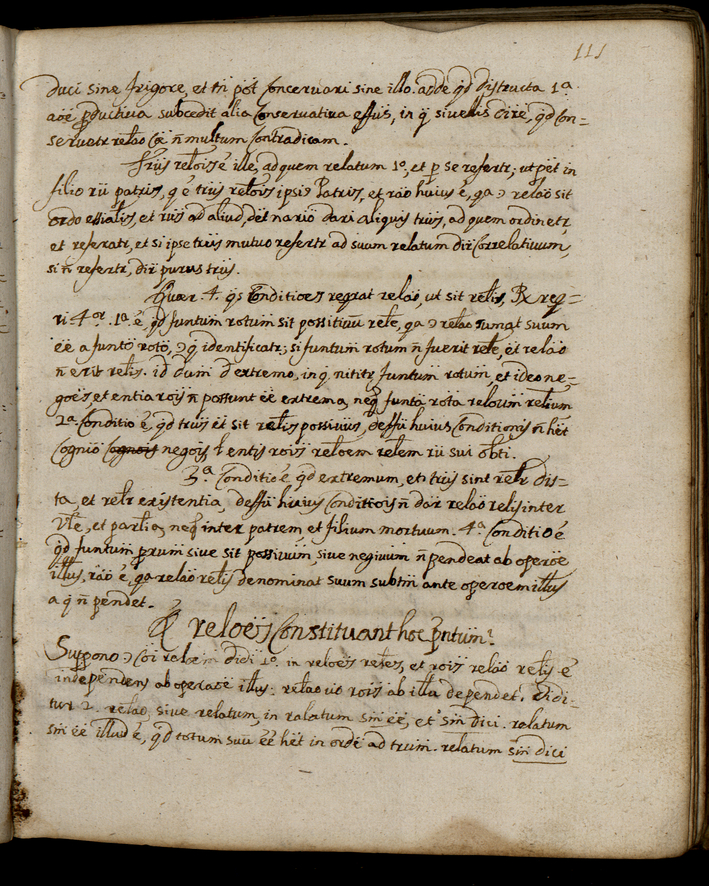 111
duci sine frigore, et tñ pöt concervari sine illo. adde qd distructa 1ª
aöe productiva subcedit alia conservativa effüs, in q̃ si velis dire, qd con=
servatr relaö cöe ñ multum contradicam.
Trüs relöis é ille, ad quem relatum 1º, et p se refertr; ut pët in
filio rü patris, q é trüs relöis ipsis Patris, et raö huius é, qa cu relaö sit
ordo essialis, et rüs ad aliud, dët nariö dari aliquis trüs, ad quem ordinetr,
et referatr, et si ipse trüs mutuo refertr ad suum relatum dir Correlativum,
si ñ refertr, dir purus trüs.
Quaer. 4. qs Conditioes reqrat relaö, ut sit relis, R. req=
ri 4or. 1ª é, qd funtum rotum sit possitivü rele, qa cu relaö sumat suum
ëe a funto roto, cu q identificatr; si funtum rotum ñ fuerit rele, et relaö
ñ erit relis. id dum d extremo, in q nititr funtum rotum, et ideo ne=
goës, et entia roïs ñ possunt ëe extrema, neq funta rota reloum relium
2ª Conditio é, qd trüs ët sit relis possivus, deffü huius Conditionis ñ hët
Cognio negöis l entis roïs reloem relem rü sui obti.
3ª Conditio é qd extremum, et trüs sint relr dis=
ta, et relr existentia, deffü huius Conditiois ñ dar relaö relis inter
Vle, et parlia, neq inter patrem, et filium mortuum. 4ª Conditio é
qd funtum prum sive sit possivum, sive negivum ñ pendeat ab operöe
illus, raö é, qa relaö relis denominat suum subtm ante operoem illus
a q ñ pendet.
Q reloës Constituant hoc pntum?
Suppono cu Coi reloem didi 1º. in reloës reles, et roïs relaö relis é
independens ab operaöe illus: relaö vö roïs ab illa dependet. Didi-
tur 2. relaö, sive relatum, in ralatum sm ëe, et sm dici. relatum
sm ëe illud é, qd totum suü ëe hët in orde ad trum. relatum sm dici